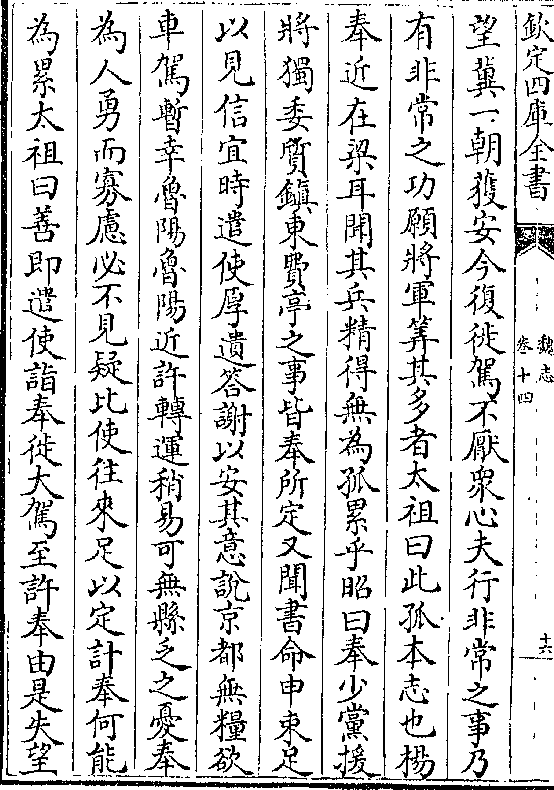 欽定四庫全書
魏志
卷十四
十六
望冀一朝獲安今復徙駕不厭衆心夫行非常之事乃
有非常之功願將軍筭其多者太祖曰此孤本志也楊
奉近在梁耳聞其兵精得無為孤累乎昭曰奉少黨援
將獨委質鎮東費亭之事皆奉所定又聞書命申束足
以見信宜時遣使厚遺答謝以安其意說京都無糧欲
車駕暫幸魯陽魯陽近許轉運稍易可無縣乏之憂奉
為人勇而寡慮必不見疑比使往來足以定計奉何能
為累太祖曰善即遣使詣奉徙大駕至許奉由是失望